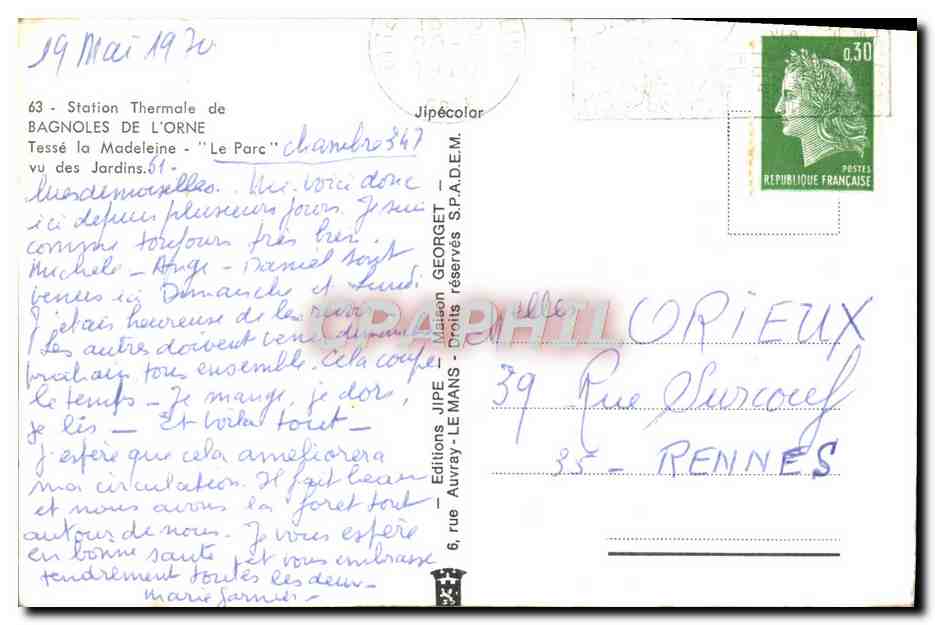 19 Mai 1970
63 - Station Thermale de
BAGNOLES DE L'ORNE
Tessé la Madeleine - "Le Parc" chambre 347
vu des Jardins. 61 -
Mesdemoiselles. Me voici donc
ici depuis plusieurs jours. Je suis
comme toujours très bien.
Michele - Ange - Daniel sont
venus ici Dimanche et Lundi
j'étais heureuse de les revoir
Les autres doivent venir dimanche
prochain tous ensemble. Cela coupe
le temps - Je mange, je dors,
je lis - Et voilà tout -
J'espère que cela améliorera
ma circulation. Il fait beau
et nous avons la foret tout
autour de nous. Je vous espère
en bonne santé et vous embrasse
tendrement toutes les deux -
Marie Garnier -
Jipécolor
- Editions JIPE - Maison GEORGET -
6, rue Auvray - LE MANS - Droits réservés S.P.A.D.E.M.
0,30
POSTES
REPUBLIQUE FRANÇAISE
CPAPHIL
Melles ORIEUX
39 Rue Surcouf
35 - RENNES